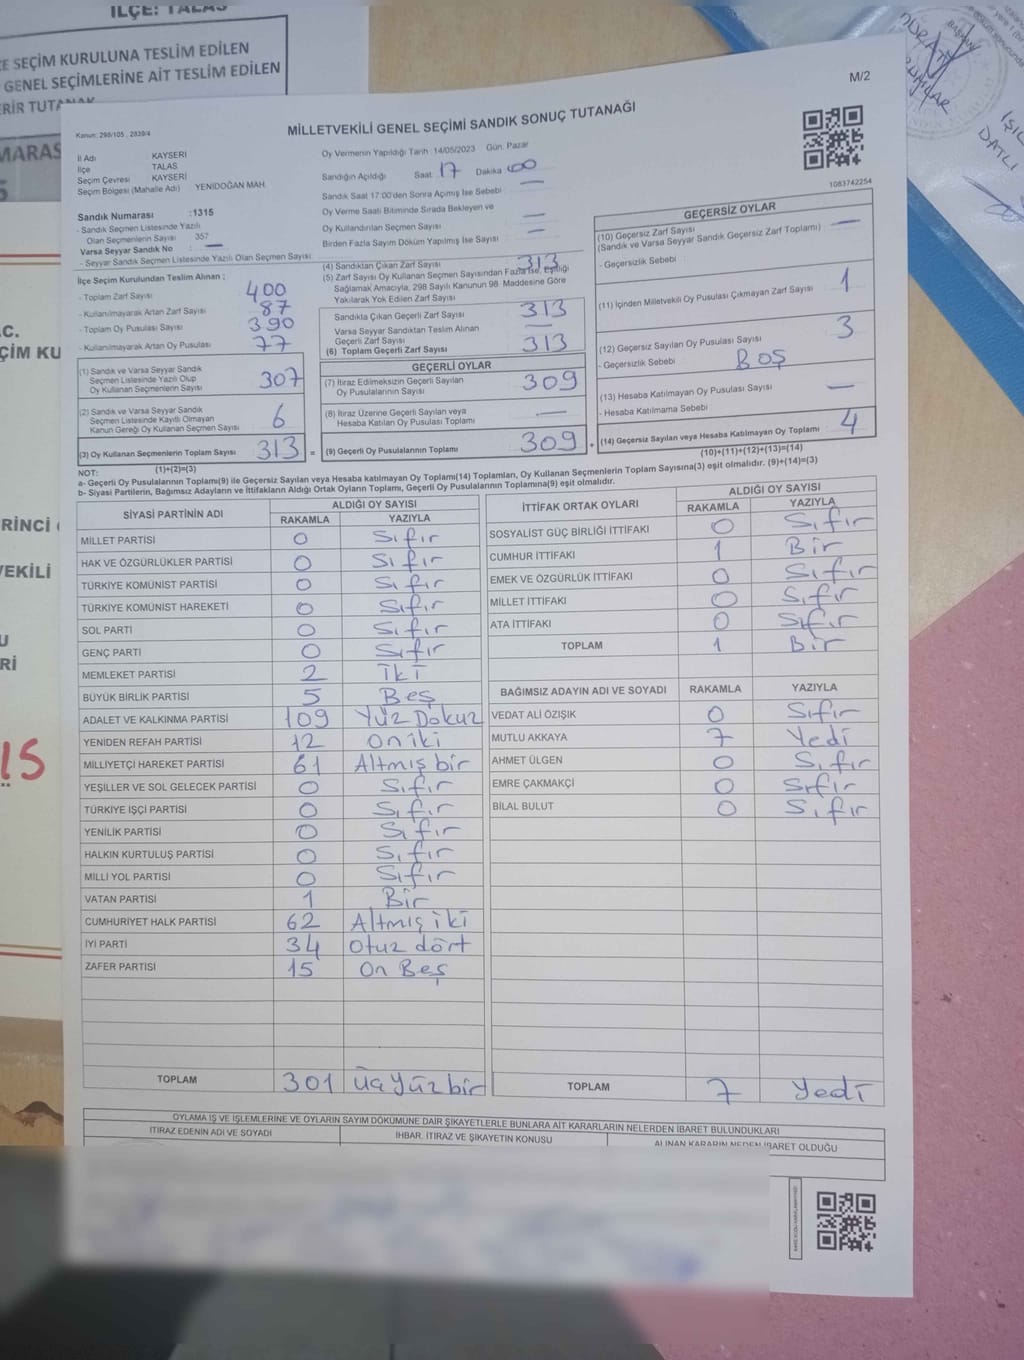 İLÇE: TALAS
E SEÇİM KURULUNA TESLİM EDİLEN
GENEL SEÇİMLERİNE AİT TESLİM EDİLEN
RİR TUTANAK
MARAS
C.
ÇİM KU
RİNCİ
VEKİLİ
U
Rİ
MURAT
BAŞKAN
IŞIL
DATLI
M/2
Kanun: 298/105 , 2839/4
MİLLETVEKİLİ GENEL SEÇİMİ SANDIK SONUÇ TUTANAĞI
İl Adı : KAYSERİ
İlçe : TALAS
Seçim Çevresi : KAYSERİ
Seçim Bölgesi (Mahalle Adı) : YENİDOĞAN MAH.
Sandık Numarası :1315
- Sandık Seçmen Listesinde Yazılı
Olan Seçmenlerin Sayısı : 357
Varsa Seyyar Sandık No : —
- Seyyar Sandık Seçmen Listesinde Yazılı Olan Seçmen Sayısı:
Oy Vermenin Yapıldığı Tarih :14/05/2023 Gün: Pazar
Sandığın Açıldığı Saat: 17 Dakika: 00
Sandık Saat 17:00'den Sonra Açımış İse Sebebi : —
Oy Verme Saati Bitiminde Sırada Bekleyen ve
Oy Kullandırılan Seçmen Sayısı : —
Birden Fazla Sayım Döküm Yapılmış İse Sayısı : —
1083742254
İlçe Seçim Kurulundan Teslim Alınan ;
- Toplam Zarf Sayısı : 400
- Kullanılmayarak Artan Zarf Sayısı : 87
- Toplam Oy Pusulası Sayısı : 390
- Kullanılmayarak Artan Oy Pusulası : 77
(1) Sandık ve Varsa Seyyar Sandık
Seçmen Listesinde Yazılı Olup
Oy Kullanan Seçmenlerin Sayısı : 307
(2) Sandık ve Varsa Seyyar Sandık
Seçmen Listesinde Kayıtlı Olmayan
Kanun Gereği Oy Kullanan Seçmen Sayısı : 6
(3) Oy Kullanan Seçmenlerin Toplam Sayısı : 313
(1)+(2)=(3)
(4) Sandıktan Çıkan Zarf Sayısı : 313
(5) Zarf Sayısı Oy Kullanan Seçmen Sayısından Fazla İse, Eşitliği
Sağlamak Amacıyla, 298 Sayılı Kanunun 98. Maddesine Göre
Yakılarak Yok Edilen Zarf Sayısı :
Sandıkta Çıkan Geçerli Zarf Sayısı : 313
Varsa Seyyar Sandıktan Teslim Alınan
Geçerli Zarf Sayısı : —
(6) Toplam Geçerli Zarf Sayısı : 313
GEÇERLİ OYLAR
(7) İtiraz Edilmeksizin Geçerli Sayılan
Oy Pusulalarının Sayısı : 309
(8) İtiraz Üzerine Geçerli Sayılan veya
Hesaba Katılan Oy Pusulası Toplamı : —
= (9) Geçerli Oy Pusulalarının Toplamı : 309 +
GEÇERSİZ OYLAR
(10) Geçersiz Zarf Sayısı : —
(Sandık ve Varsa Seyyar Sandık Geçersiz Zarf Toplamı)
- Geçersizlik Sebebi :
(11) İçinden Milletvekili Oy Pusulası Çıkmayan Zarf Sayısı : 1
(12) Geçersiz Sayılan Oy Pusulası Sayısı : 3
- Geçersizlik Sebebi : BOŞ
(13) Hesaba Katılmayan Oy Pusulası Sayısı : —
- Hesaba Katılmama Sebebi :
(14) Geçersiz Sayılan veya Hesaba Katılmayan Oy Toplamı : 4
(10)+(11)+(12)+(13)=(14)
NOT:
a- Geçerli Oy Pusulalarının Toplamı(9) ile Geçersiz Sayılan veya Hesaba katılmayan Oy Toplamı(14) Toplamları, Oy Kullanan Seçmenlerin Toplam Sayısına(3) eşit olmalıdır. (9)+(14)=(3)
b- Siyasi Partilerin, Bağımsız Adayların ve İttifakların Aldığı Ortak Oyların Toplamı, Geçerli Oy Pusulalarının Toplamına(9) eşit olmalıdır.
SİYASİ PARTİNİN ADI ALDIĞI OY SAYISI
RAKAMLA YAZIYLA
MİLLET PARTİSİ 0 Sıfır
HAK VE ÖZGÜRLÜKLER PARTİSİ 0 Sıfır
TÜRKİYE KOMÜNİST PARTİSİ 0 Sıfır
TÜRKİYE KOMÜNİST HAREKETİ 0 Sıfır
SOL PARTİ 0 Sıfır
GENÇ PARTİ 0 Sıfır
MEMLEKET PARTİSİ 2 İki
BÜYÜK BİRLİK PARTİSİ 5 Beş
ADALET VE KALKINMA PARTİSİ 109 Yüz Dokuz
YENİDEN REFAH PARTİSİ 12 on iki
MİLLİYETÇİ HAREKET PARTİSİ 61 Altmış bir
YEŞİLLER VE SOL GELECEK PARTİSİ 0 Sıfır
TÜRKİYE İŞÇİ PARTİSİ 0 Sıfır
YENİLİK PARTİSİ 0 Sıfır
HALKIN KURTULUŞ PARTİSİ 0 Sıfır
MİLLİ YOL PARTİSİ 0 Sıfır
VATAN PARTİSİ 1 Bir
CUMHURİYET HALK PARTİSİ 62 Altmış iki
İYİ PARTİ 34 Otuz dört
ZAFER PARTİSİ 15 On Beş
TOPLAM 301 üçYüzbir
İTTİFAK ORTAK OYLARI ALDIĞI OY SAYISI
RAKAMLA YAZIYLA
SOSYALİST GÜÇ BİRLİĞİ İTTİFAKI 0 Sıfır
CUMHUR İTTİFAKI 1 Bir
EMEK VE ÖZGÜRLÜK İTTİFAKI 0 Sıfır
MİLLET İTTİFAKI 0 Sıfır
ATA İTTİFAKI 0 Sıfır
TOPLAM 1 Bir
BAĞIMSIZ ADAYIN ADI VE SOYADI RAKAMLA YAZIYLA
VEDAT ALİ ÖZIŞIK 0 Sıfır
MUTLU AKKAYA 7 Yedi
AHMET ÜLGEN 0 Sıfır
EMRE ÇAKMAKÇİ 0 Sıfır
BİLAL BULUT 0 Sıfır
TOPLAM 7 Yedi
OYLAMA İŞ VE İŞLEMLERİNE VE OYLARIN SAYIM DÖKÜMÜNE DAİR ŞİKAYETLERLE BUNLARA AİT KARARLARIN NELERDEN İBARET BULUNDUKLARI
İTİRAZ EDENİN ADI VE SOYADI İHBAR, İTİRAZ VE ŞİKAYETİN KONUSU ALINAN KARARIN NEDEN İBARET OLDUĞU